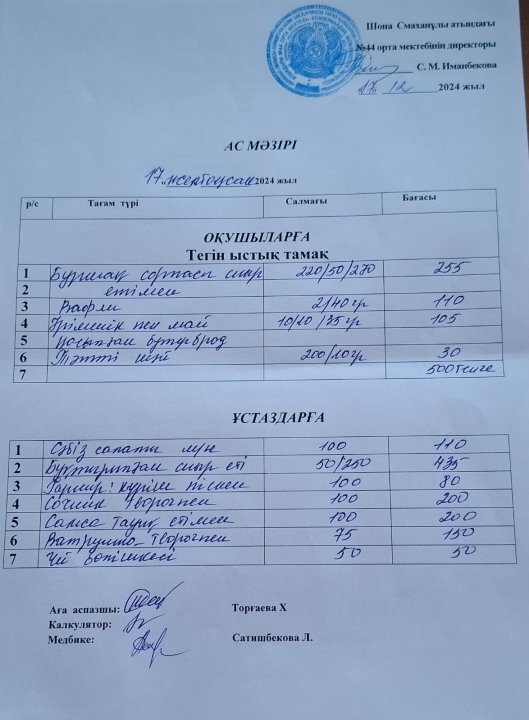 Шона Смаханұлы атындағы
№44 орта мектебінің директоры
С. М. Иманбекова
17. 12 2024 жыл
АС МӘЗІРІ
17 желтоқсан 2024 жыл
р/с Тағам түрі Салмағы Бағасы
ОҚУШЫЛАРҒА
Тегін ыстық тамақ
1 сорпасы сиыр 220/50/270 255
2 етімен
3 Вафли 2/40гр 110
4 Ірімшік пен май 10/20/35гр 105
5 қосылған бутерброд
6 Тәтті шәй 200/10гр 30
7 500 теңге
ҰСТАЗДАРҒА
1 Сәбіз салаты 100 110
2 Бұқтырылған сиыр еті 50/250 435
3 Гарнир: күріш піскен 100 80
4 Сочник творогпен 100 200
5 Самса тауық етімен 100 200
6 Ватрушка творогпен 75 150
7 Үй бәлішкесі 50 50
Аға аспазшы: Торғаева Х
Калкулятор:
Медбике: Сатишбекова Л.